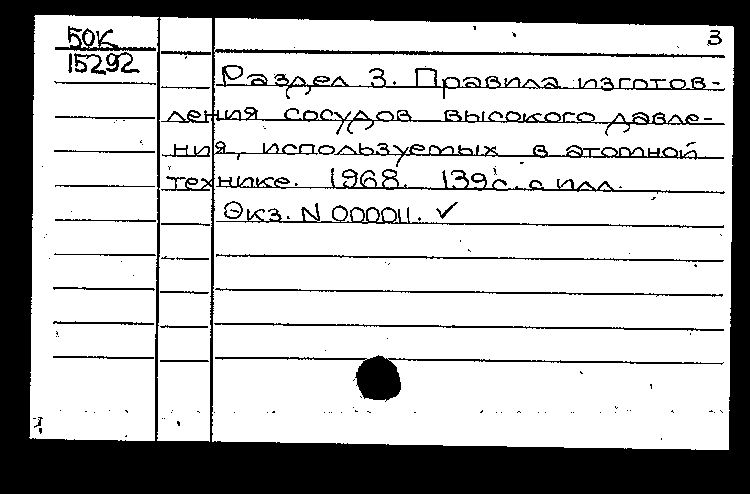 50К
15292
3
Раздел 3. Правила изготов-
ления сосудов высокого давле-
ния, используемых в атомной
технике. 1968. 139с. с илл.
Экз. N 000011. ✓